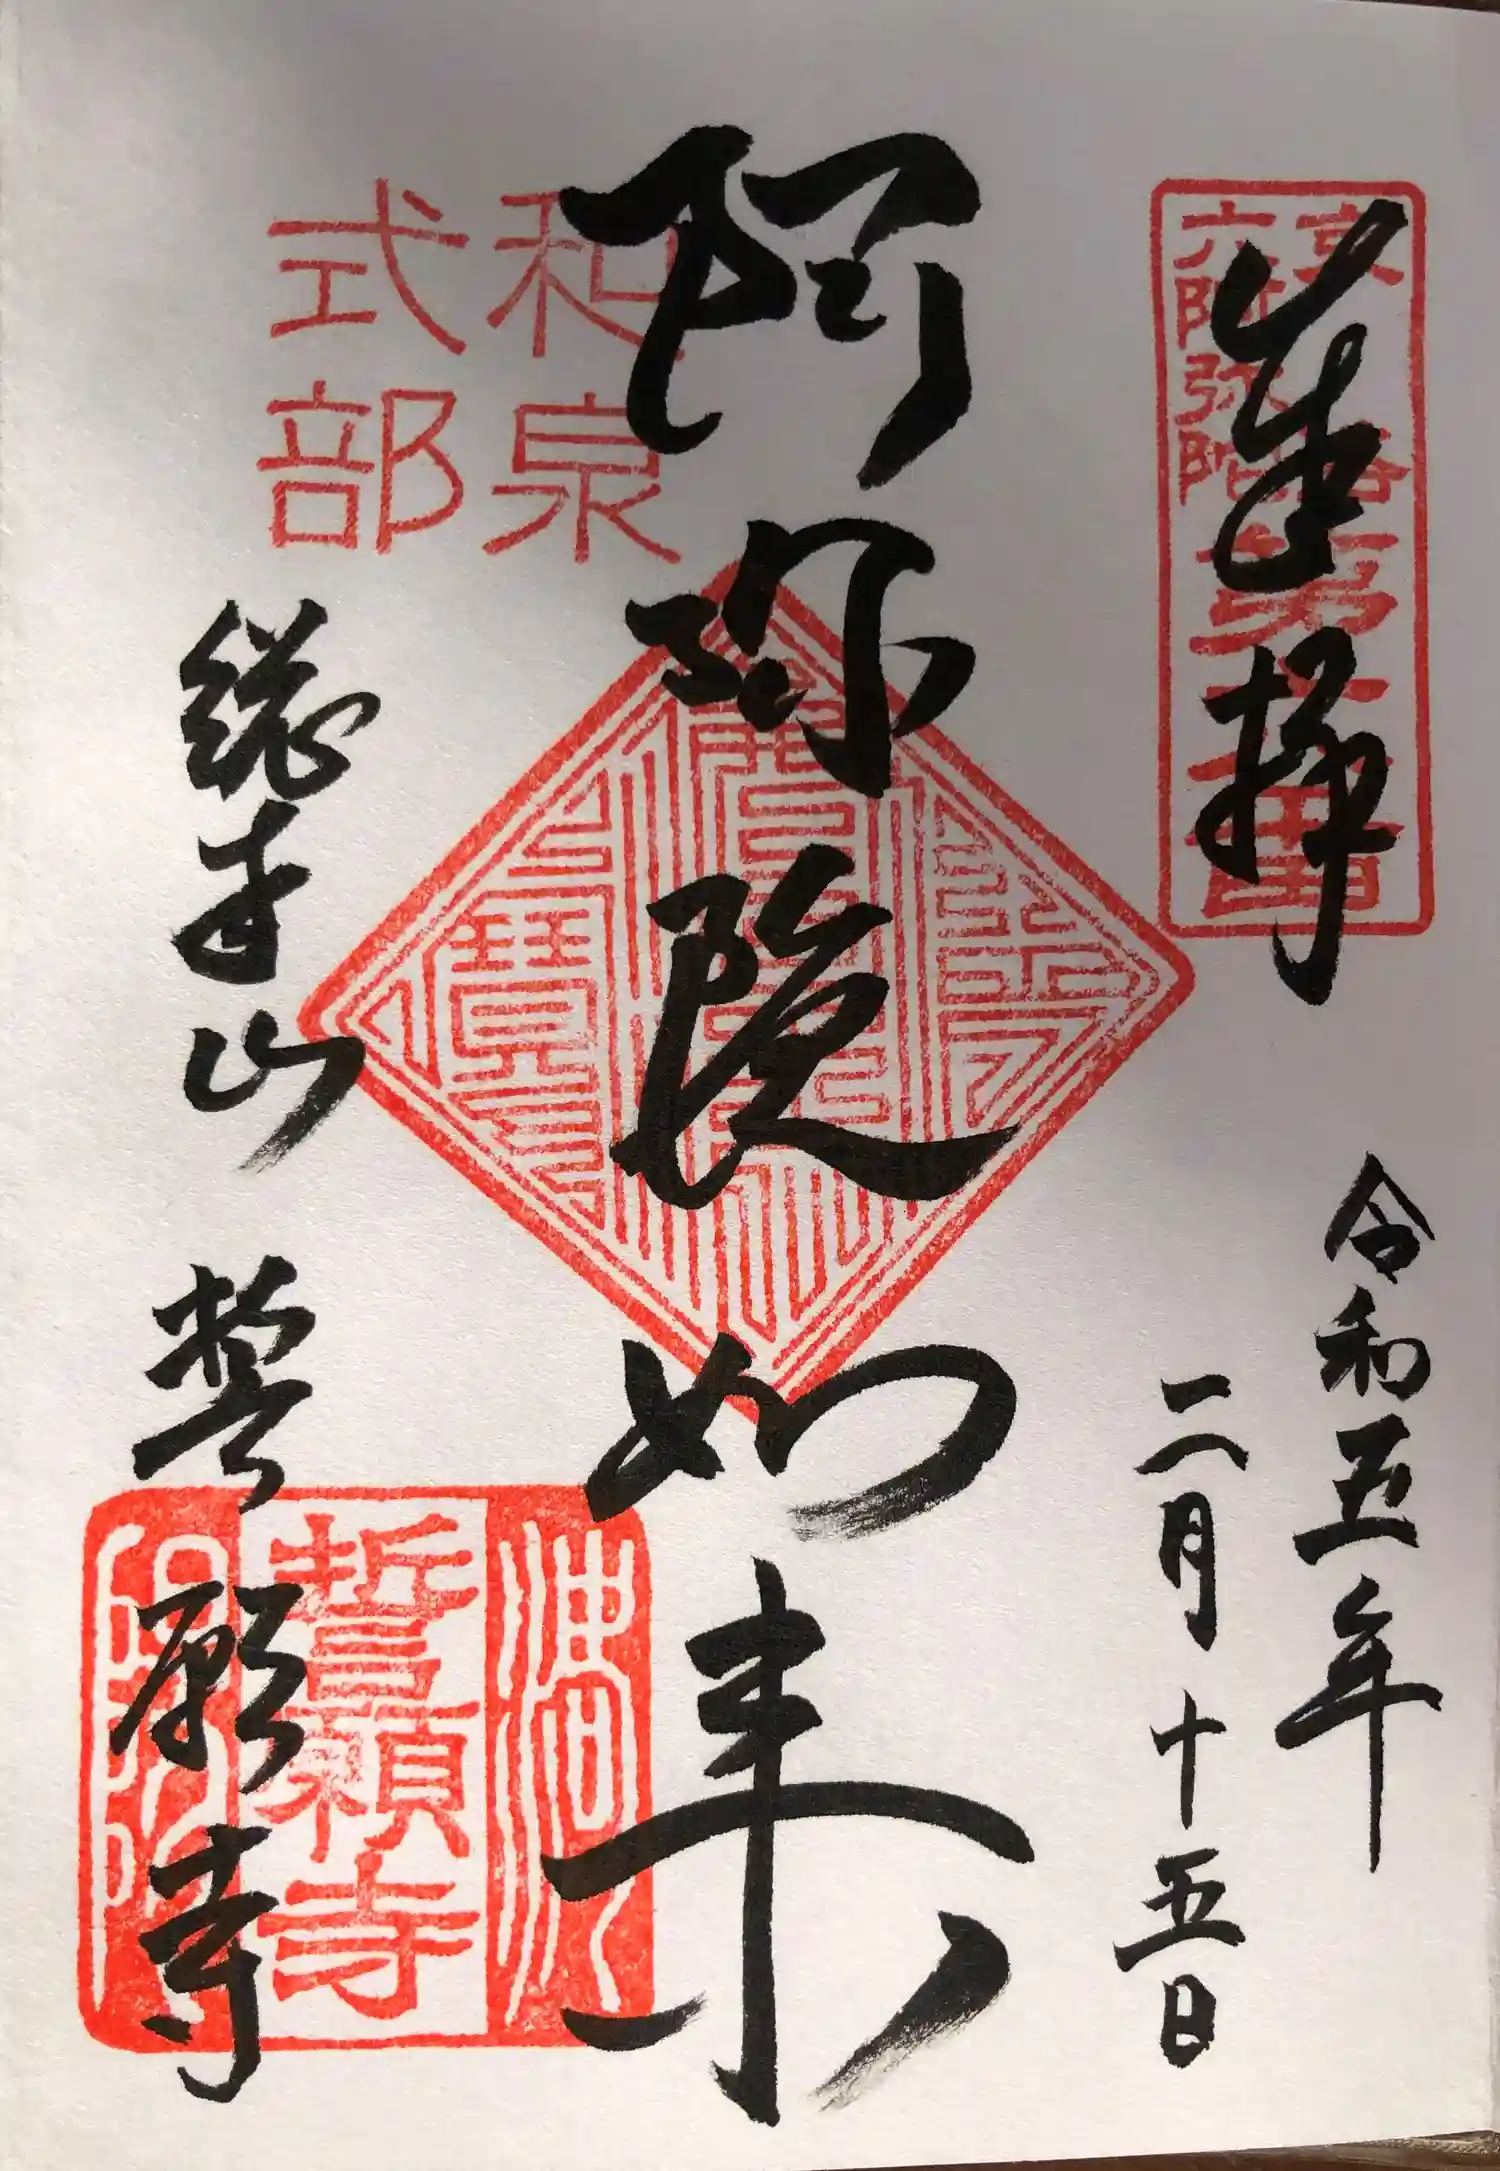 奉拝
京洛
六阿弥陀
第六番
令和五年
二月十五日
阿弥陀如来
和泉
式部
総本山 誓願寺
誓願寺